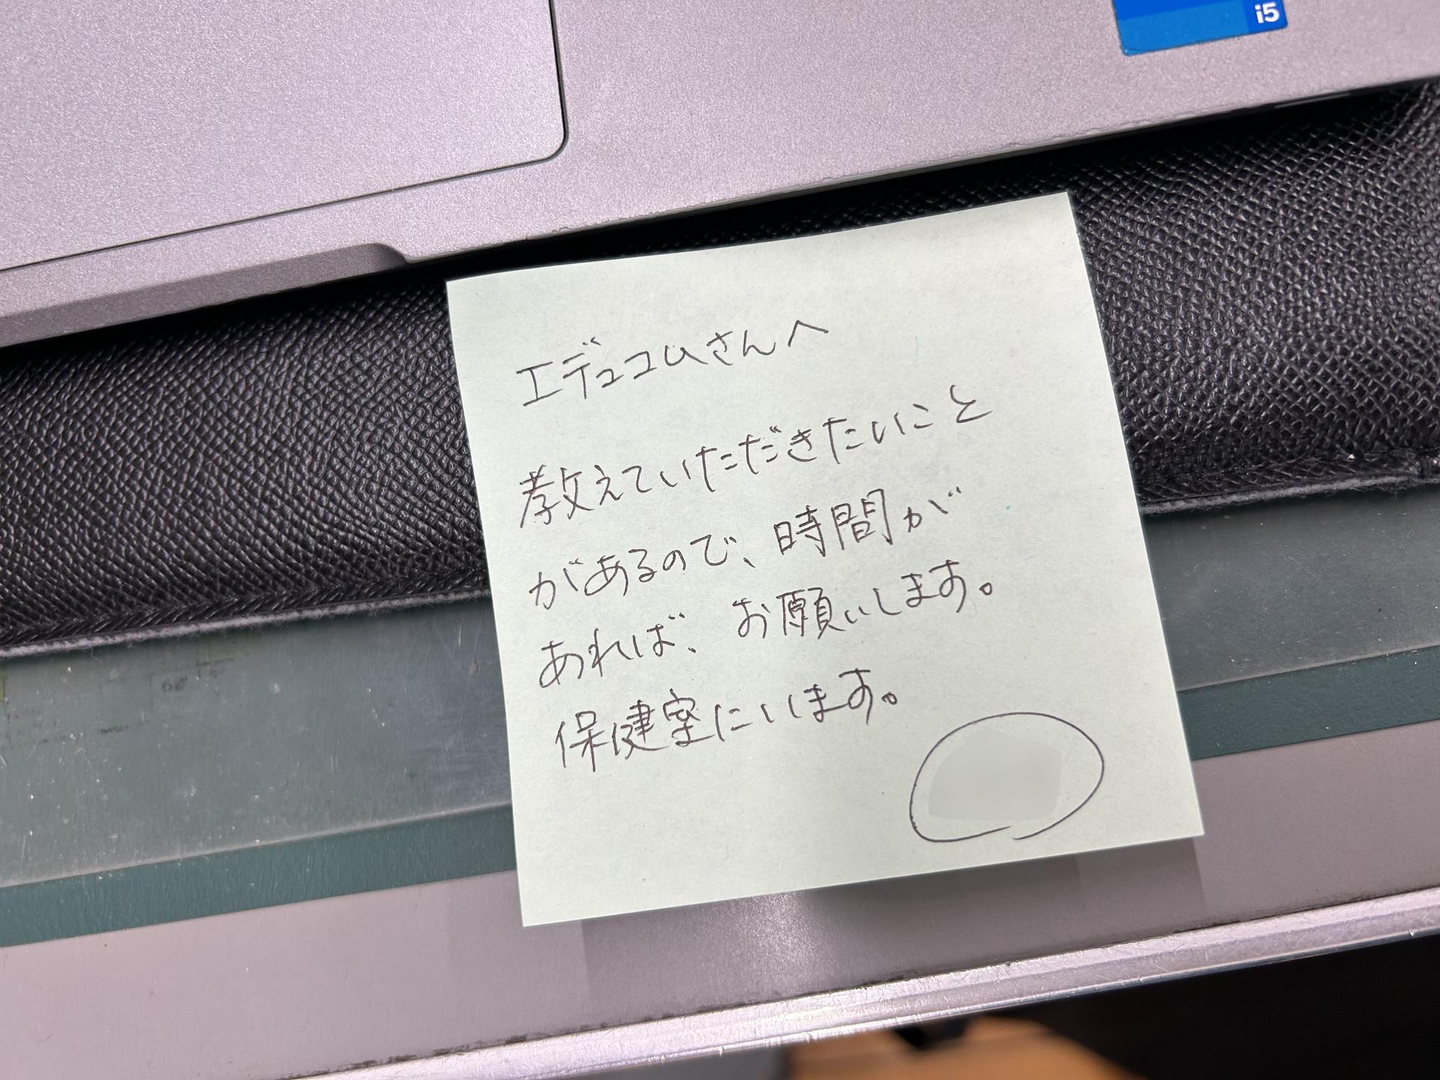 i5
エデュコムさんへ
教えていただきたいこと
があるので、時間が
あれば、お願いします。
保健室にいます。